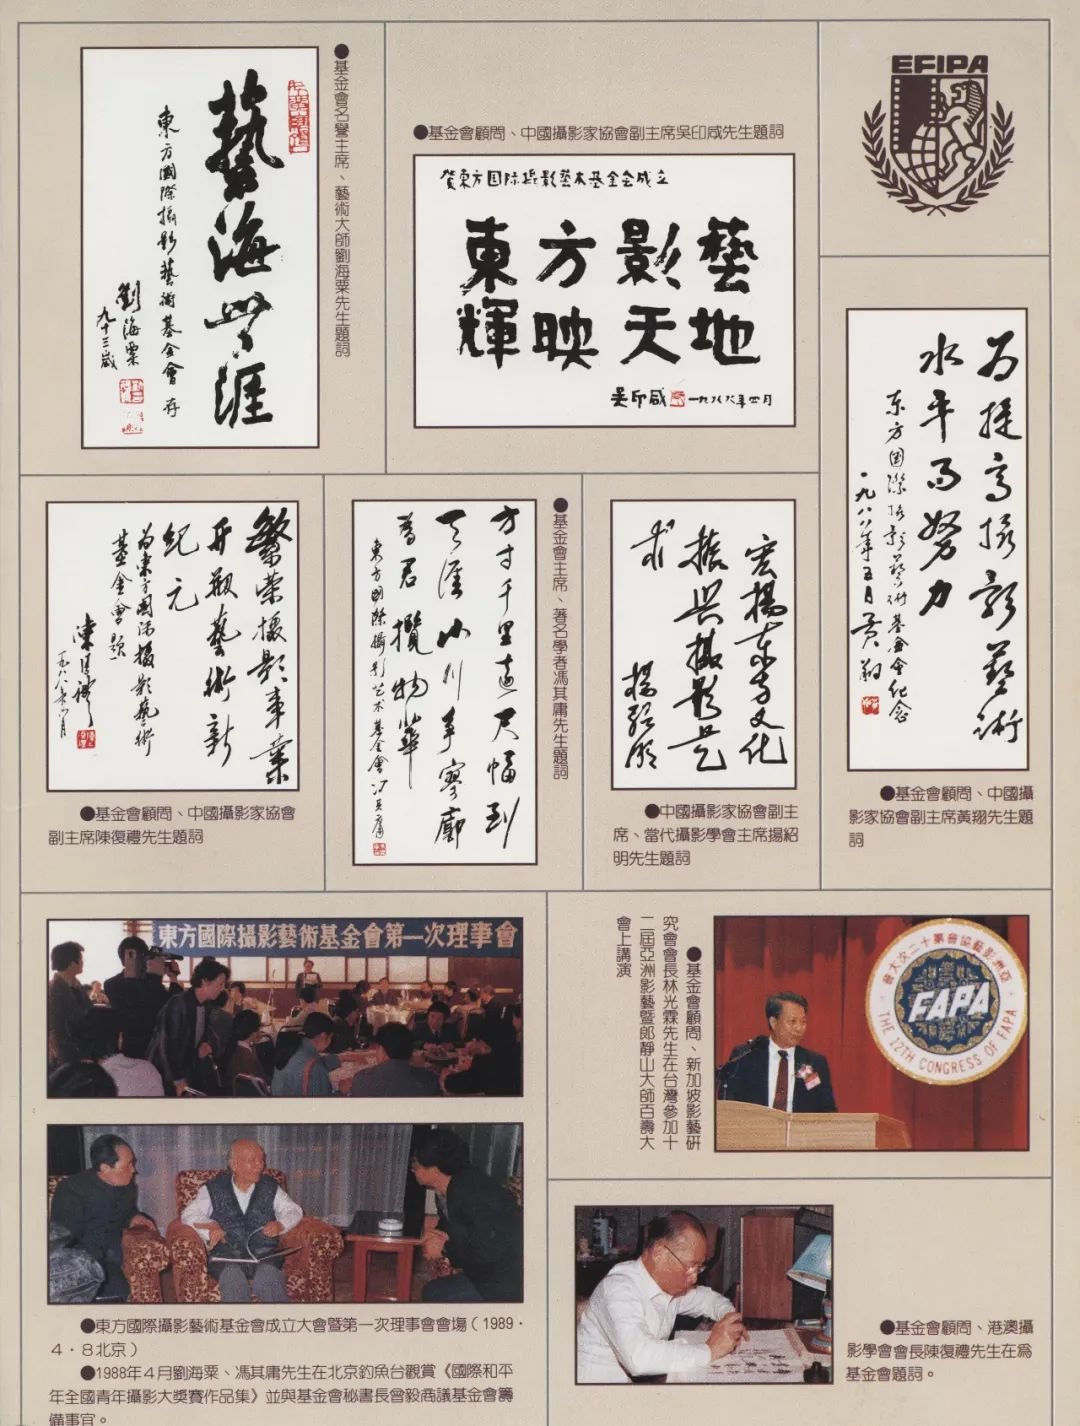 ●基金會名譽主席、藝術大師劉海粟先生題詞
藝海無涯
東方國際攝影藝術基金會存
劉海粟
九十三歲
●基金會顧問、中國攝影家協會副主席吳印咸先生題詞
贺東方国际摄影芸术基金会成立
東方影藝
輝映天地
吴印咸
一九八八年四月
EFIPA
为提高摄影藝術
水平而努力
东方国際摄影藝術基金會纪念
一九八八年五月 黄翔
●基金會顧問、中國攝
影家協會副主席黃翔先生題
詞
繁荣摄影事業
开觀藝術新
紀元
为東方国际摄影藝術
基金會題
陳復禮
●基金會顧問、中國攝影家協會
副主席陳復禮先生題詞
●基金會主席、著名學者馮其庸先生題詞
方寸千里遠尺幅到
天涯山川手寥廓
為君攬物華
東方國際攝影艺术基金會 冯其庸
宏揚东方文化
振興攝影艺
术
楊紹明
●中國攝影家協會副主
席、當代攝影學會主席揚紹
明先生題詞
東方國際攝影藝術基金會第一次理事會
●東方國際攝影藝術基金會成立大會暨第一次理事會會場（1989·
4·8北京）
●1988年4月劉海粟、馮其庸先生在北京釣魚台觀賞《國際和平
年全國青年攝影大獎賽作品集》並與基金會秘書長曾毅商議基金會籌
備事宜。
●基金會顧問、新加坡影藝研
究會會長林光霖先生在台灣參加十
二屆亞洲影藝暨郎靜山大師百壽大
會上講演
亞洲影藝協會第十二次大會
FAPA
THE 12TH CONGRESS OF FAPA
●基金會顧問、港澳攝
影學會會長陳復禮先生在爲
基金會題詞。